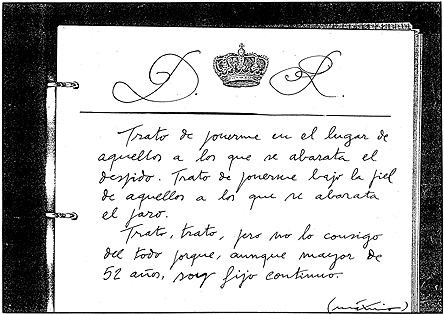 D. R.
Trato de ponerme en el lugar de
aquellos a los que se abarata el
despido. Trato de ponerme bajo la piel
de aquellos a los que se abarata
el paro.
Trato, trato, pero no lo consigo
del todo porque, aunque mayor de
52 años, soy fijo continuo.
(máximo)